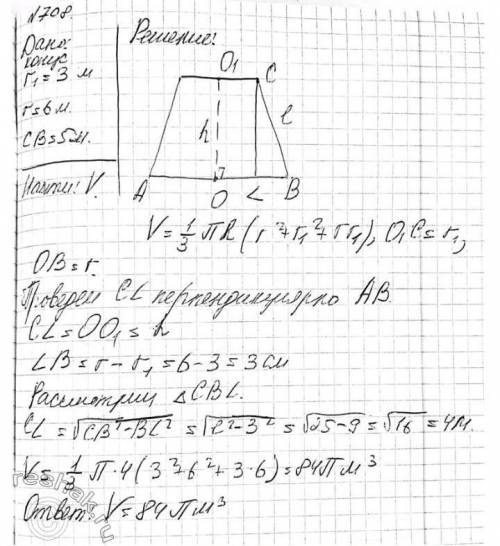 №708.
Дано:
конус
r₁ = 3 м
r = 6 м.
CB = 5 м.
Найти: V.
Решение:
O₁ C
h l
A O L B
V = 1/3 πh (r² + r₁² + r r₁), O₁C = r₁,
OB = r.
Проведем CL перпендикулярно AB.
CL = OO₁ = h
LB = r - r₁ = 6 - 3 = 3 см
Рассмотрим △CBL.
CL = √(CB² - BL²) = √(l² - 3²) = √(25 - 9) = √16 = 4 м.
V = 1/3 π · 4 (3² + 6² + 3 · 6) = 84 π м³
Ответ: V = 84 π м³
reshak.ru